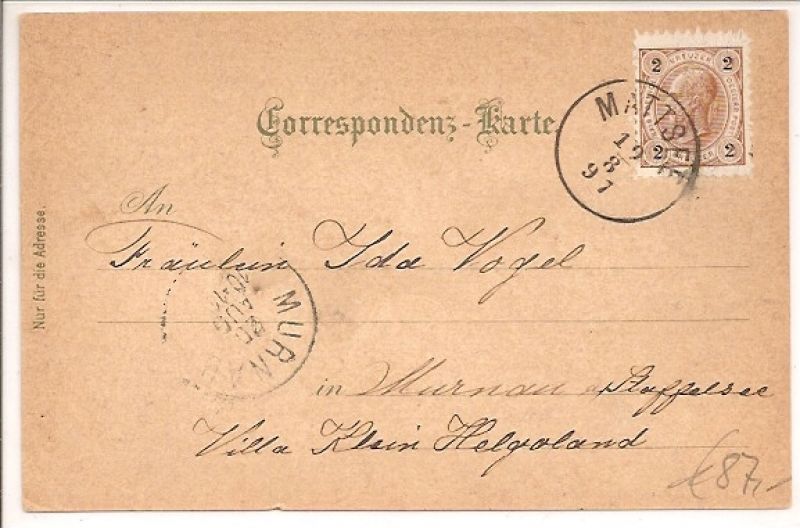 Correspondenz-Karte.
2 KREUZER 2
2 2
MATTSEE
19
8
97
An
Fräulein Ida Vogel
Nur für die Adresse.
MURNAU
AUG
in Murnau a/Staffelsee
Villa Klein Helgoland
€87,-